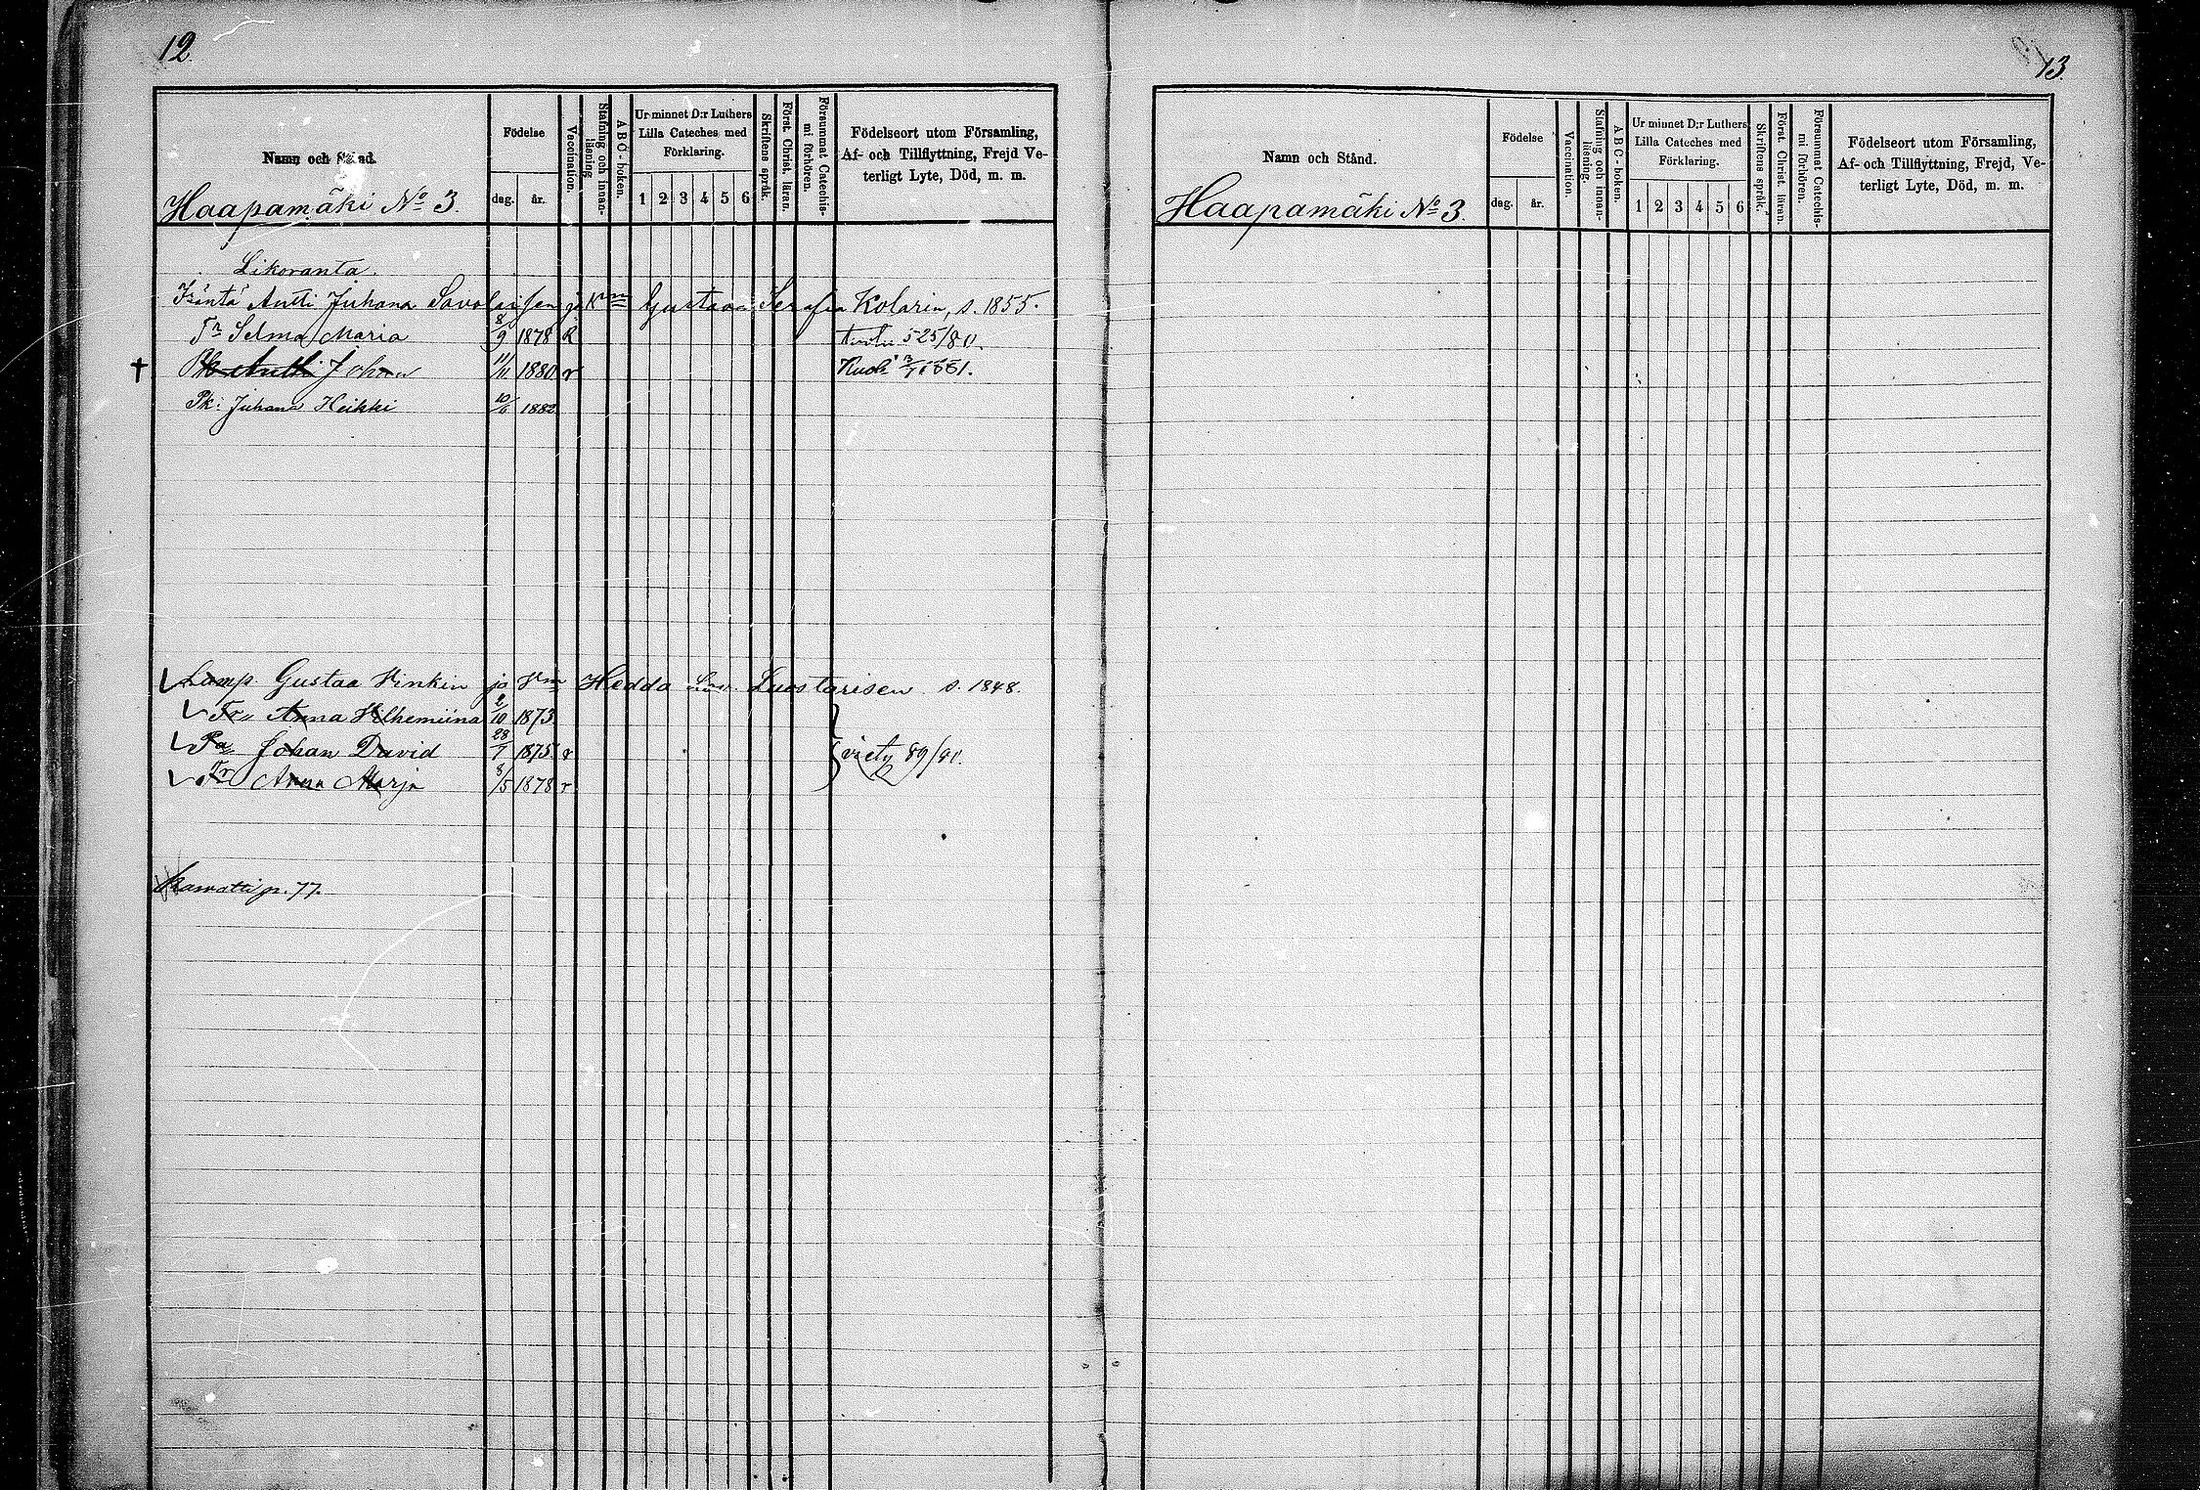 12.
Namn och Stånd.
Haapamäki No 3.
Födelse
dag. år.
Vaccination.
Stafning och innan-
läsning
A B C-boken.
Ur minnet D:r Luthers
Lilla Cateches med
Förklaring.
1 2 3 4 5 6
Skriftens språk.
Först. Christ. läran.
Försummat Catechis-
mi förhören.
Födelseort utom Församling,
Af- och Tillflyttning, Frejd Ve-
terligt Lyte, Död, m. m.
Likoranta.
Isäntä Antti Juhana Savolaisen ja Vmo Gustaava Serafia Kolarin, s. 1855.
Tr Selma Maria 8/9 1878 R 525/80.
† Pk Antti Johan 11/11 1880 r Kuoli 1881.
Pk: Juhana Heikki 10/6 1882
Lamp. Gustaa Vinkin ja Vmo Hedda Luostarisen s. 1848.
Tr Anna Vilhemiina 2/10 1873
Pa Johan David 28/7 1875. r viety 89/91.
Tr Anna Marja 8/5 1878 r
Kawatti p. 77.
13.
Namn och Stånd.
Haapamäki No 3.
Födelse
dag. år.
Vaccination.
Stafning och innan-
läsning.
A B C-boken.
Ur minnet D:r Luthers
Lilla Cateches med
Förklaring.
1 2 3 4 5 6
Skriftens språk.
Först. Christ. läran.
Försummat Catechis-
mi förhören.
Födelseort utom Församling,
Af- och Tillflyttning, Frejd, Ve-
terligt Lyte, Död, m. m.